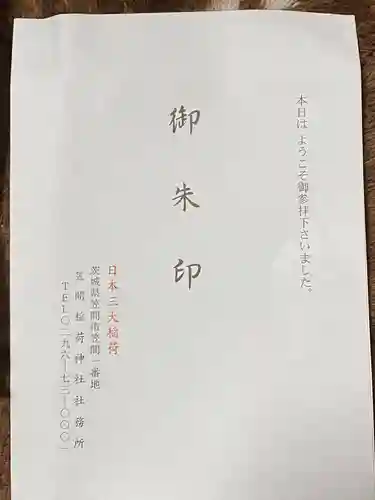 本日は ようこそ御参拝下さいました。
御朱印
日本三大稲荷
茨城県笠間市笠間一番地
笠間稲荷神社社務所
TEL〇二九六―七三―〇〇〇一